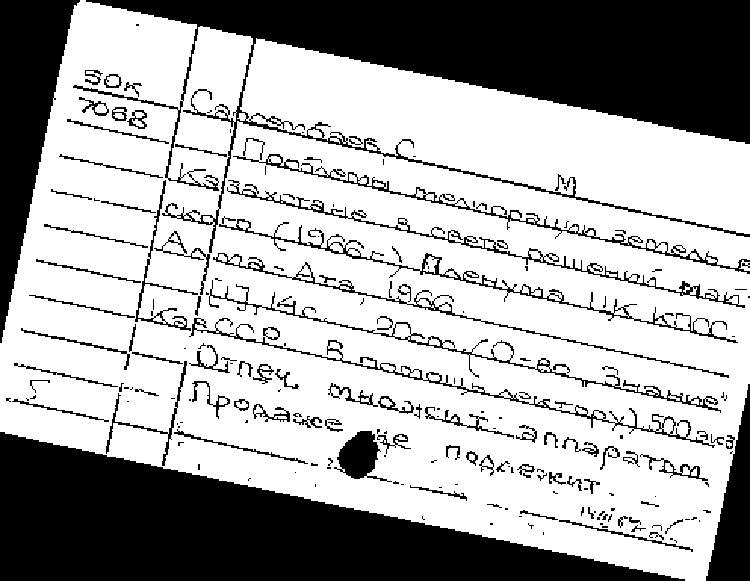 30к
7068
Сарсембаев, С
М
Проблемы мелиорации земель в
Казахстане в свете решений май-
ского (1966 г.) Пленума ЦК КПСС.
Алма-Ата, 1966.
[1], 14 с. 20 см (О-во „Знание"
КазССР. В помощь лектору) 500 экз
Отпеч. множит. аппаратом.
Продаже не подлежит.